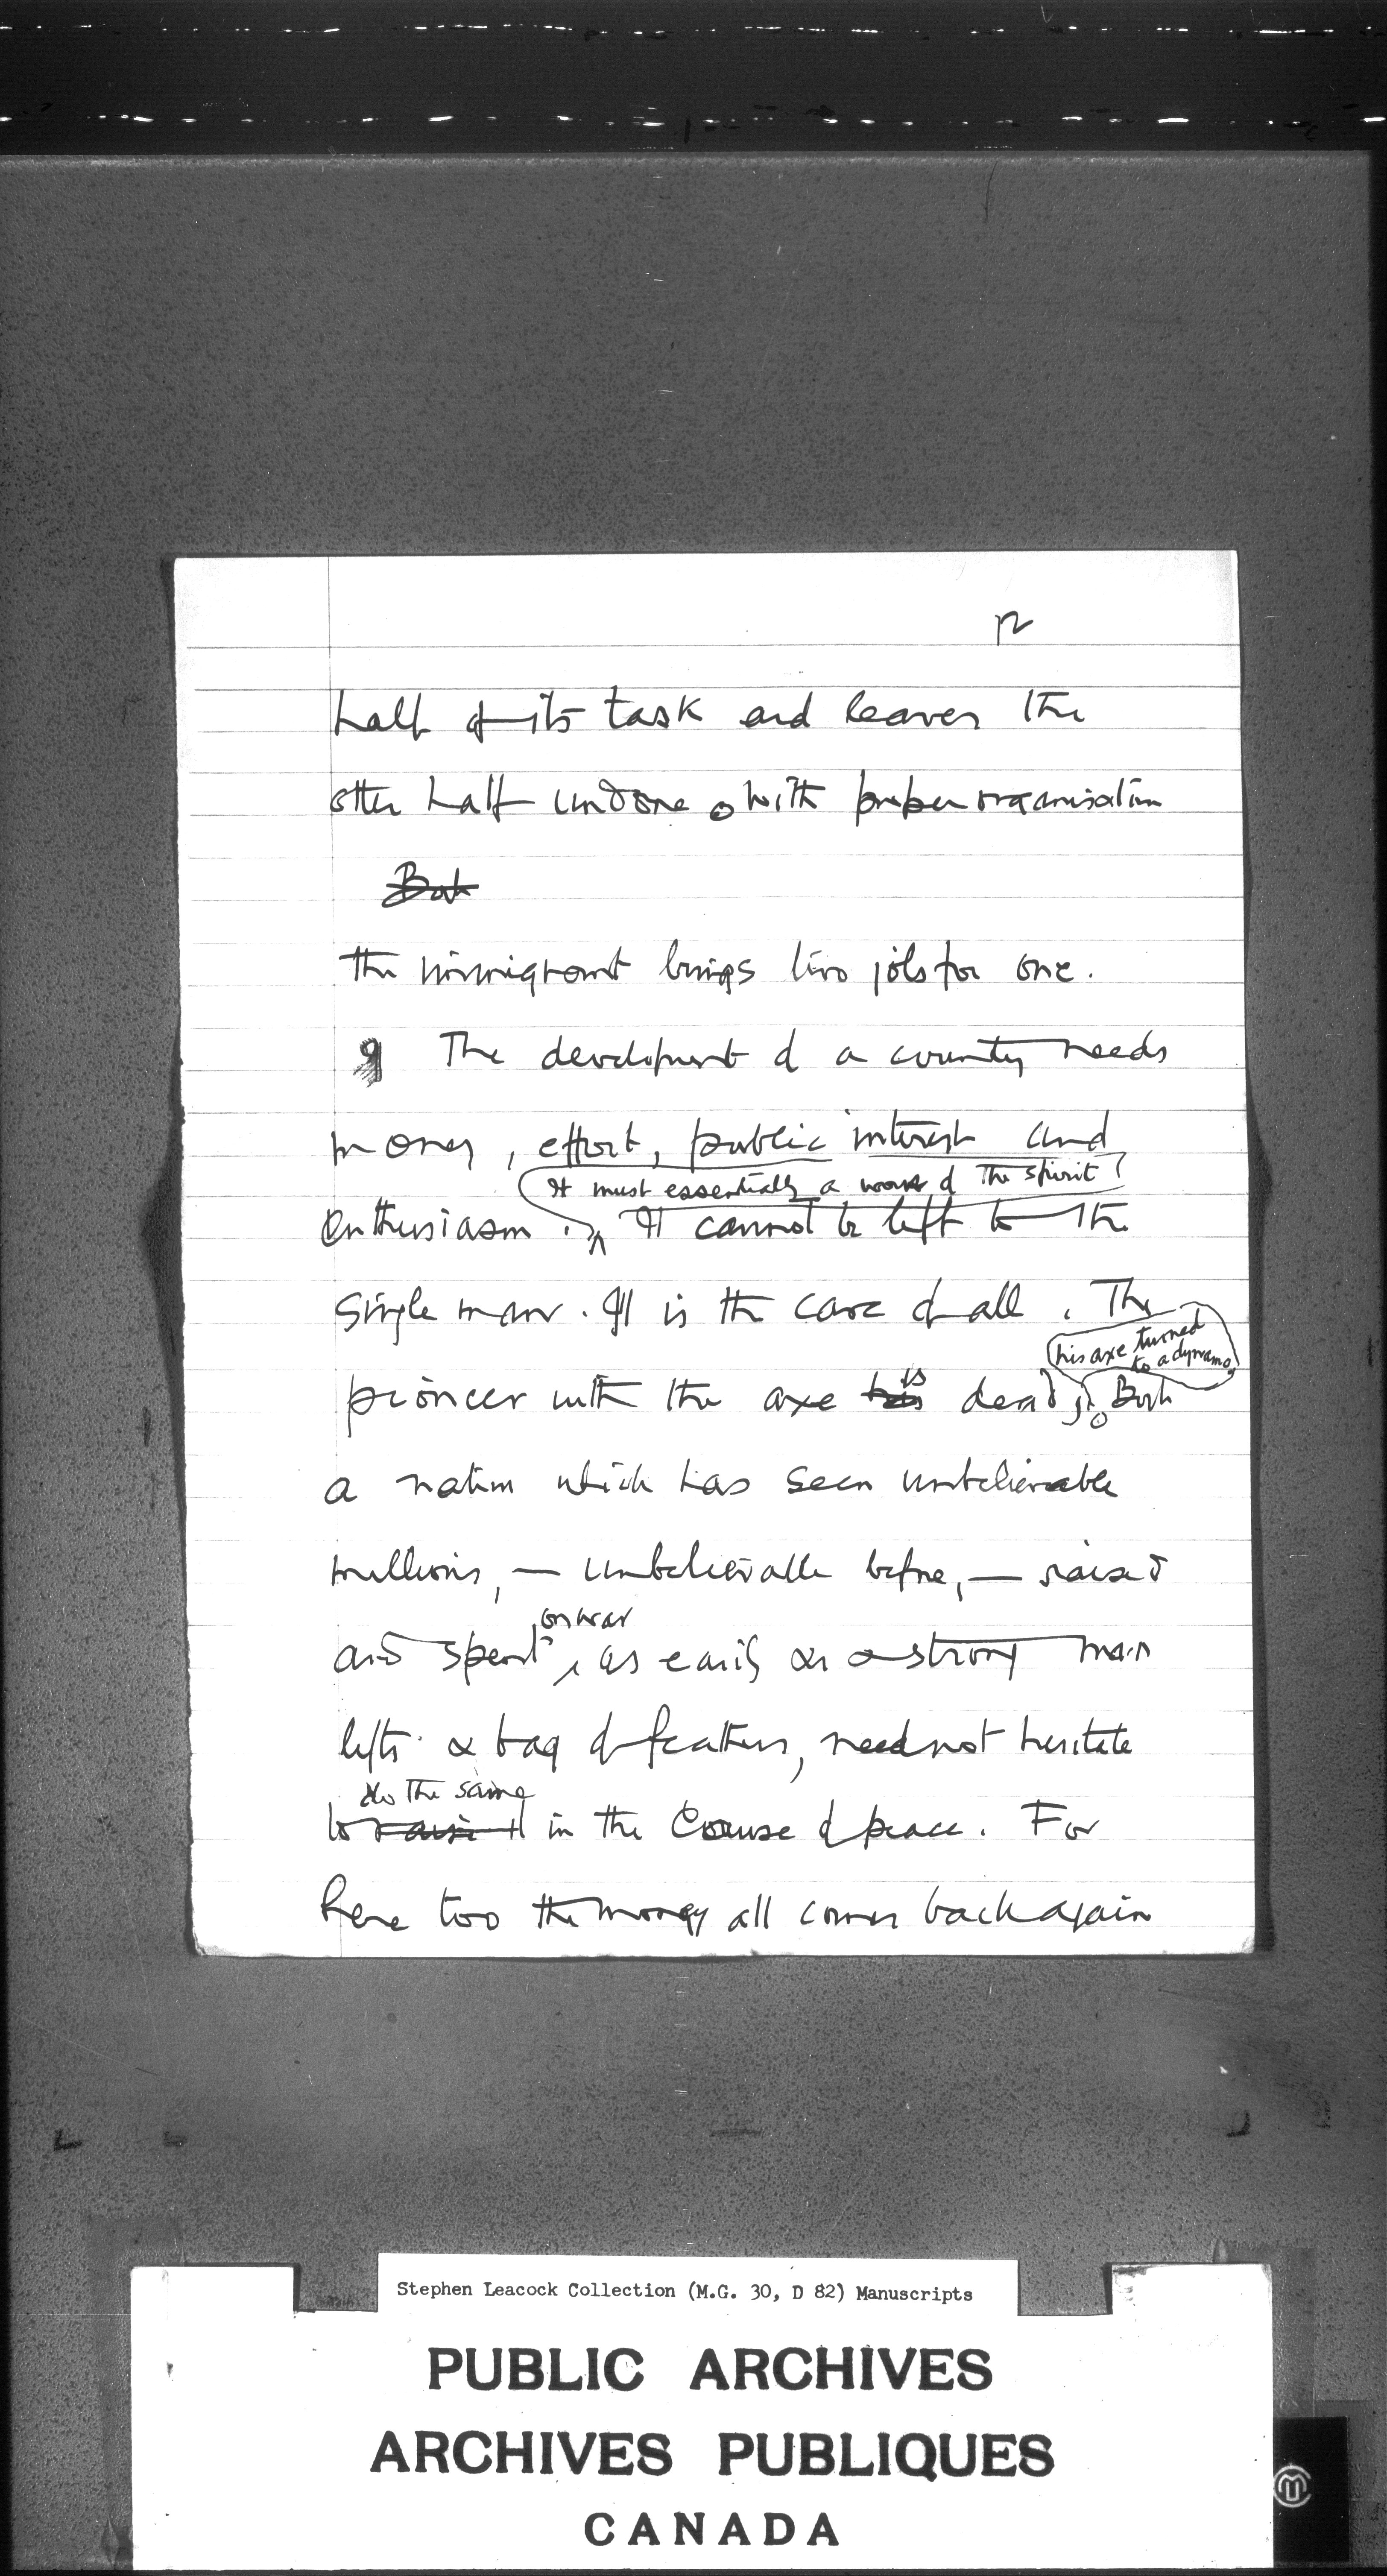 12
half of its task and leaves the
other half undone. With proper organisation
But
the immigrant brings two jobs for one.
The development of a country needs
money, effort, public interest and
It must essentially a of the spirit
enthusiasm. It cannot be left to the
single man. It is the care of all. The
his axe turned
to a dynamo
is
pioneer with the axe dead; But
a nation which has seen unbelievable
millions, — unbelievable before, — raised
on war
and spent, as easily as a strong man
lifts a bag of feathers, need not hesitate
do the same
to raise it in the cause of peace. For
here too the money all comes back again
Stephen Leacock Collection (M.G. 30, D 82) Manuscripts
PUBLIC ARCHIVES
ARCHIVES PUBLIQUES
CANADA